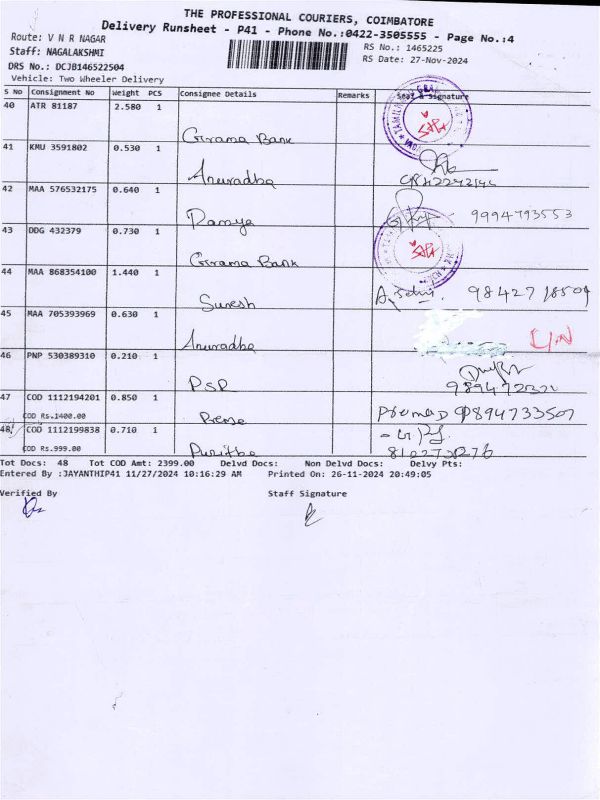 THE PROFESSIONAL COURIERS, COIMBATORE
Delivery Runsheet - P41 - Phone No.:0422-3505555 - Page No.:4
Route: V N R NAGAR
RS No.: 1465225
Staff: NAGALAKSHMI
RS Date: 27-Nov-2024
DRS No.: DCJB146522504
Vehicle: Two Wheeler Delivery
S No Consignment No Weight PCS Consignee Details Remarks Seal & Signature
40 ATR 81187 2.580 1 Grama Bank
41 KMU 3591802 0.530 1 Anuradha
42 MAA 576532175 0.640 1 Ramya 9994793553
43 DDG 432379 0.730 1 Grama Bank
44 MAA 868354100 1.440 1 Suresh
45 MAA 705393969 0.630 1 Anuradha
46 PNP 530389310 0.210 1 PSR
47 COD 1112194201 0.850 1
COD Rs.1400.00 Prema 9894733507
48 COD 1112199838 0.710 1
COD Rs.999.00
Tot Docs: 48 Tot COD Amt: 2399.00 Delvd Docs: Non Delvd Docs: Delvy Pts:
Entered By :JAYANTHIP41 11/27/2024 10:16:29 AM Printed On: 26-11-2024 20:49:05
Verified By Staff Signature